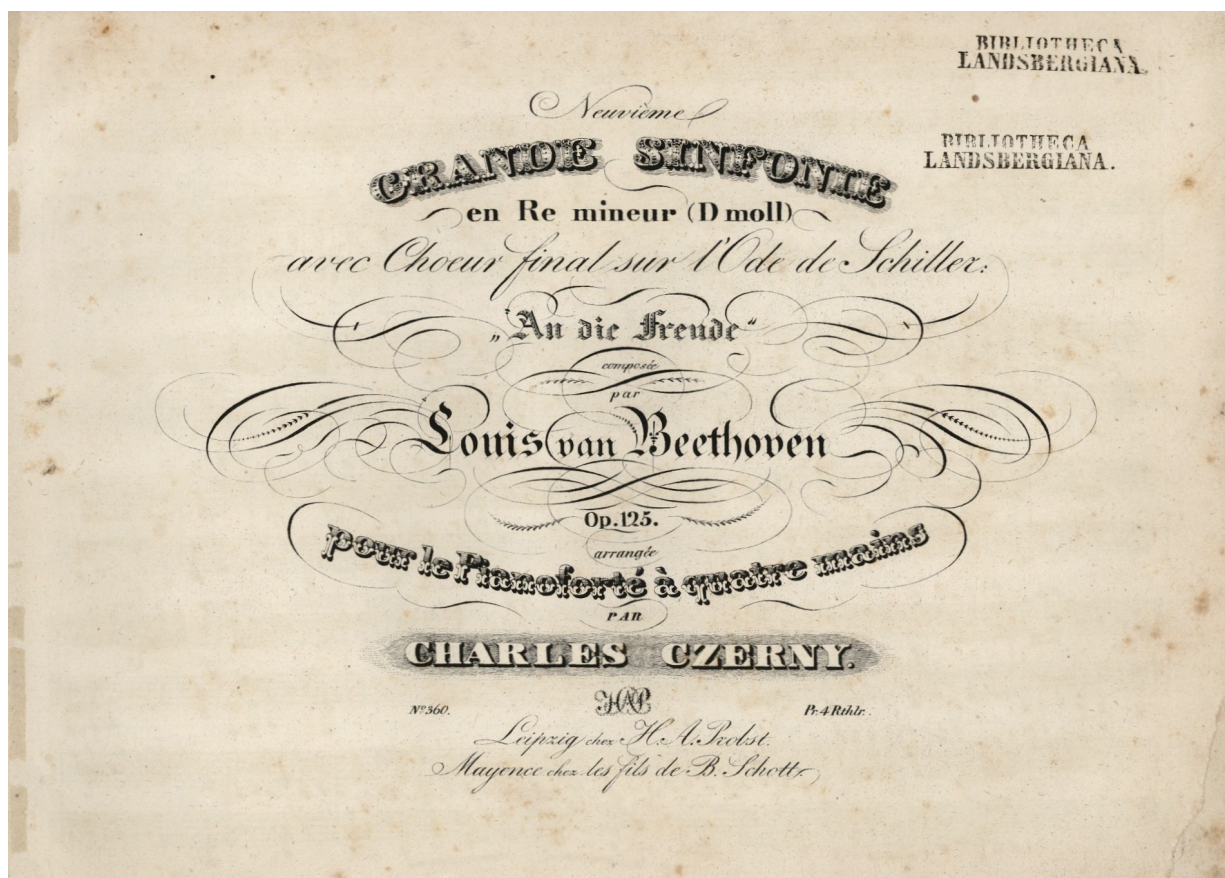 BIBLIOTHECA
LANDSBERGIANA.
BIBLIOTHECA
LANDSBERGIANA.
Neuvième
GRANDE SINFONIE
en Re mineur (D moll)
avec Choeur final sur l'Ode de Schiller:
„An die Freude“
composée
par
Louis van Beethoven
Op. 125.
arrangée
pour le Pianoforté à quatre mains
PAR
CHARLES CZERNY.
Nº 360. HAP Pr. 4 Rthlr.
Leipzig chez H. A. Probst.
Mayence chez les fils de B. Schott.